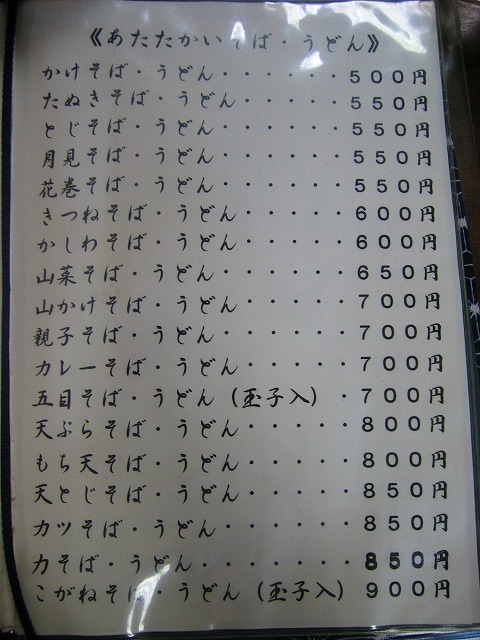 《あたたかいそば・うどん》
かけそば・うどん・・・・・・５００円
たぬきそば・うどん・・・・・・５５０円
とじそば・うどん・・・・・・５５０円
月見そば・うどん・・・・・・５５０円
花巻そば・うどん・・・・・・５５０円
きつねそば・うどん・・・・・６００円
かしわそば・うどん・・・・・６００円
山菜そば・うどん・・・・・・６５０円
山かけそば・うどん・・・・・７００円
親子そば・うどん・・・・・・７００円
カレーそば・うどん・・・・・７００円
五目そば・うどん（玉子入）・７００円
天ぷらそば・うどん・・・・・８００円
もち天そば・うどん・・・・・８００円
天とじそば・うどん・・・・・８５０円
カツそば・うどん・・・・・・８５０円
力そば・うどん・・・・・・・８５０円
こがねそば・うどん（玉子入）９００円